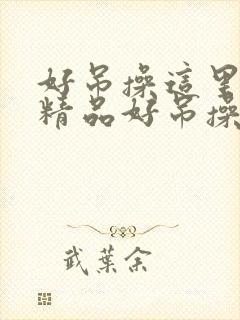 好吊操這里
精品好吊操
武葉余